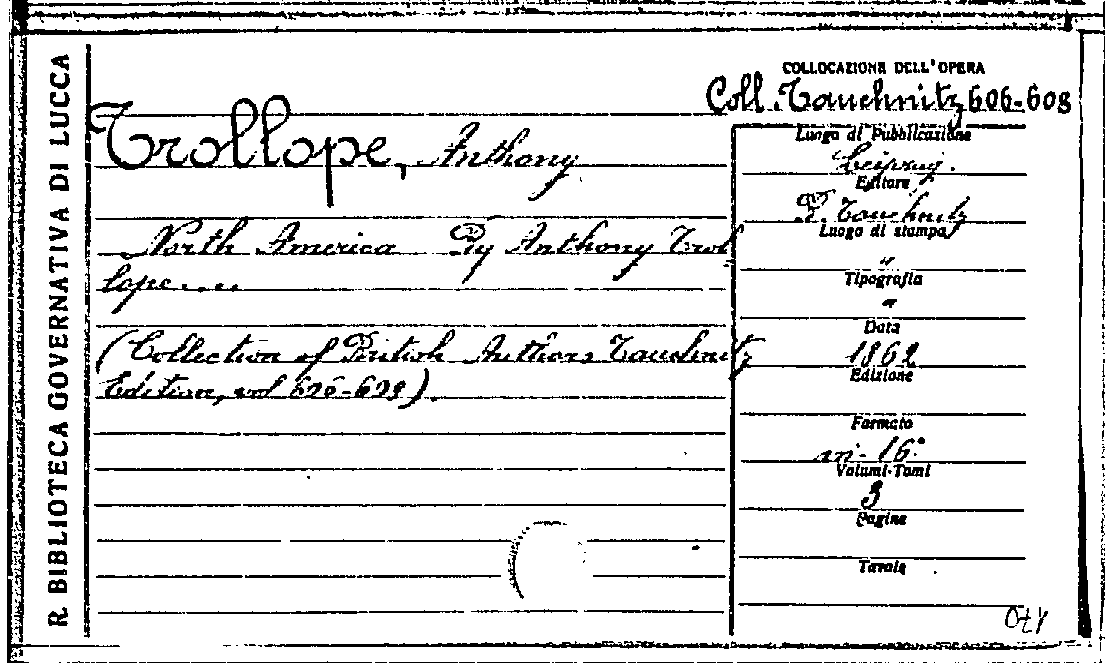 R. BIBLIOTECA GOVERNATIVA DI LUCCA
COLLOCAZIONE DELL'OPERA
Coll. Tauchnitz 606-608
Trollope, Anthony
North America By Anthony Trol
lope....
(Collection of British Authors Tauchnitz
Edition, vol 606-608).
Luogo di Pubblicazione
Leipzig.
Editore
Tauchnitz
Luogo di stampa
"
Tipografia
"
Data
1862
Edizione
Formato
in-16°
Volumi-Tomi
3
Pagine
Tavole